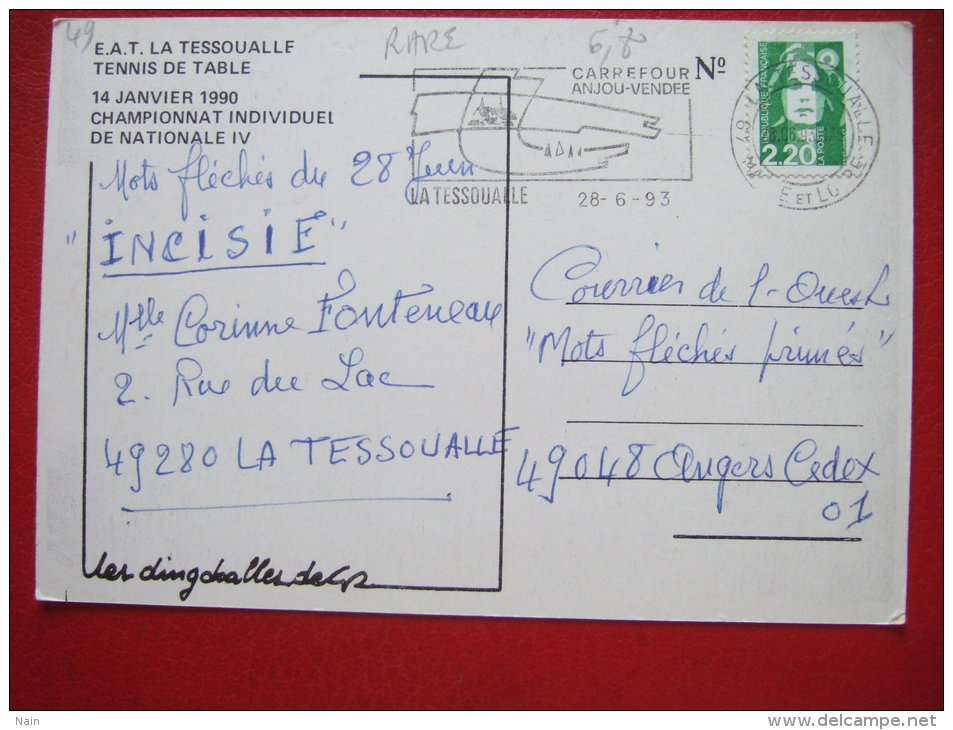 49
RARE
E.A.T. LA TESSOUALLE
TENNIS DE TABLE
14 JANVIER 1990
CHAMPIONNAT INDIVIDUEL
DE NATIONALE IV
CARREFOUR
ANJOU-VENDEE
LA TESSOUALLE 28-6-93
Nº
REPUBLIQUE FRANÇAISE
2.20
LA POSTE
Mots fléchés du 28 Juin
"INCISIE"
Mlle Corinne Fonteneau
2. Rue du Lac
49280 LA TESSOUALLE
Courrier de l'Ouest
"Mots fléchés primés"
49048 Angers Cedex
01
Les dingoballes de
Nain
www.delcampe.net